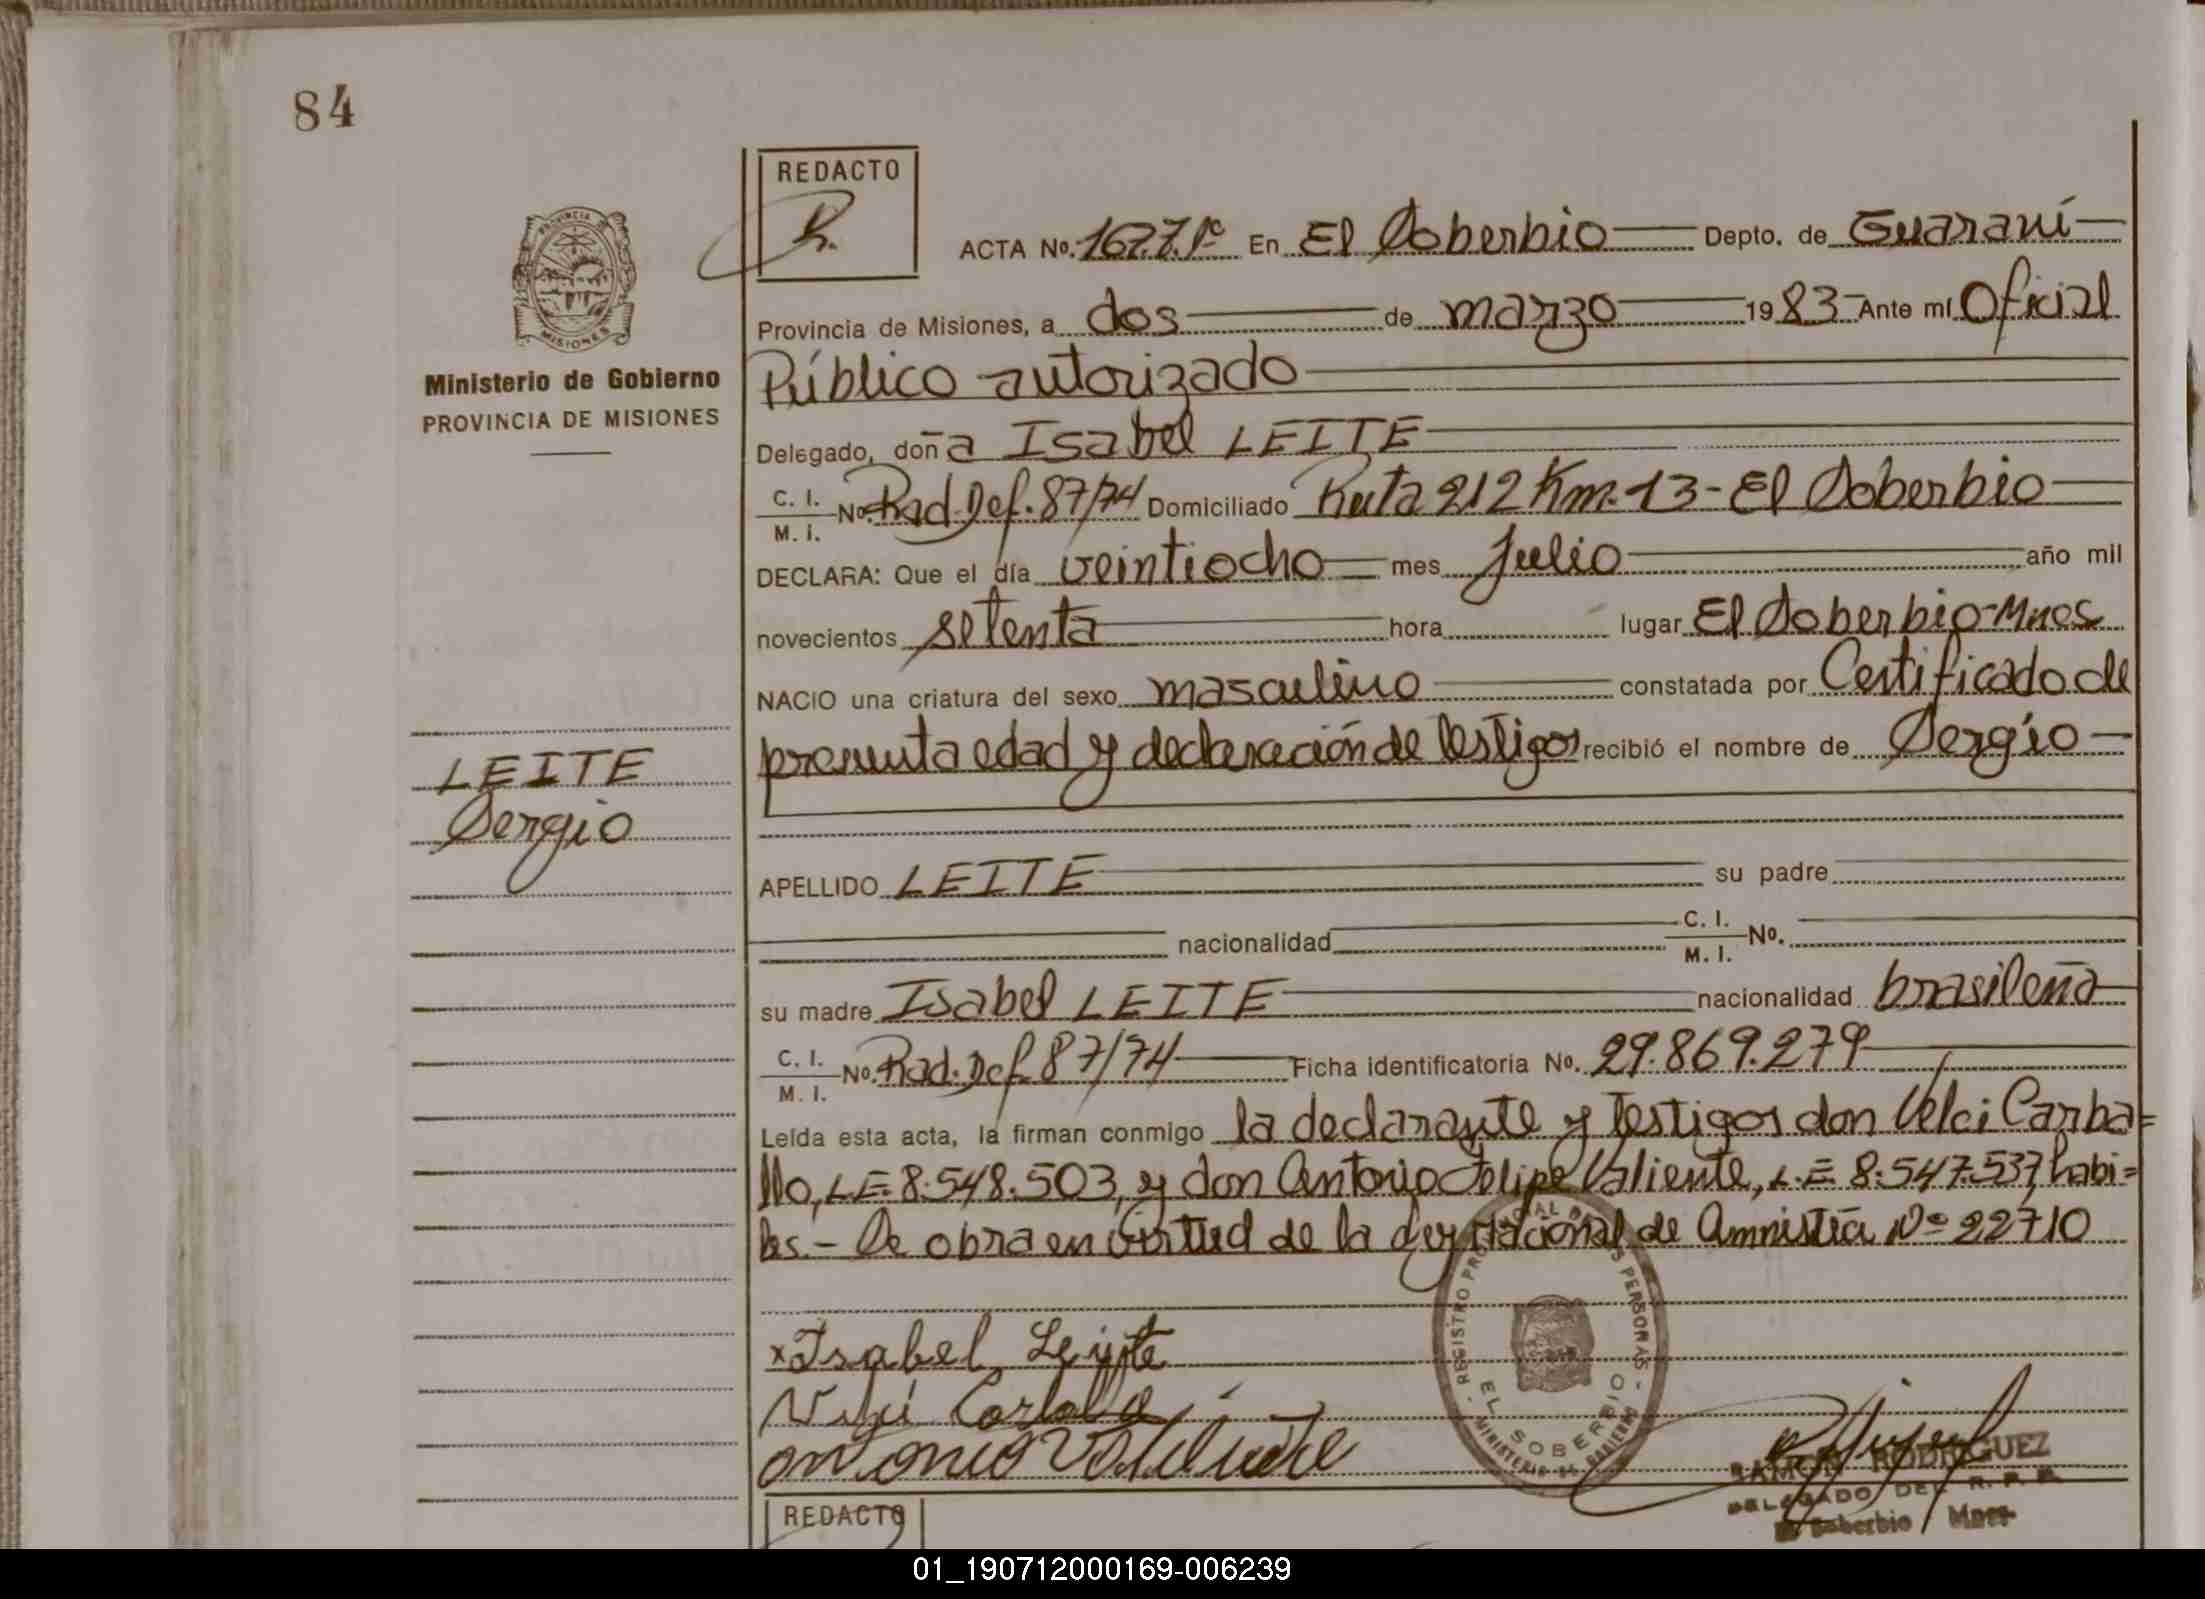 84
REDACTO
ACTA Nº. 167.7.1º En El Soberbio Depto. de Guaraní
Provincia de Misiones, a dos de marzo 1983 Ante mí Oficial
Público autorizado
Delegado, doña Isabel LEITE
C. I.
M. I.
Nº. Rad. Def. 87/74 Domiciliado Ruta 212 Km. 13 - El Soberbio
DECLARA: Que el día veintiocho mes Julio año mil
novecientos setenta hora lugar El Soberbio-Mnes
NACIO una criatura del sexo masculino constatada por Certificado de
presunta edad y declaración de testigos recibió el nombre de Sergio
APELLIDO LEITE su padre
nacionalidad C. I.
M. I. Nº.
su madre Isabel LEITE nacionalidad brasileña
C. I.
M. I.
Nº. Rad. Def. 87/74 Ficha identificatoria Nº. 29.869.279
Leída esta acta, la firman conmigo la declarante y testigos don Velci Carba=
llo, L.E. 8.548.503, y don Antonio Felipe Valiente, L.E. 8.547.537, habi=
les.- Se obra en virtud de la Ley Nacional de Amnistía Nº 22710
x Isabel Leite
Antonio Valiente
REGISTRO PERSONAS
EL SOBERBIO
MINISTERIO DE GOBIERNO
RAMON RODRIGUEZ
DELEGADO DEL R. P. P.
El Soberbio / Mnes
Ministerio de Gobierno
PROVINCIA DE MISIONES
PROVINCIA DE
MISIONES
LEITE
Sergio
REDACTO
01_190712000169-006239